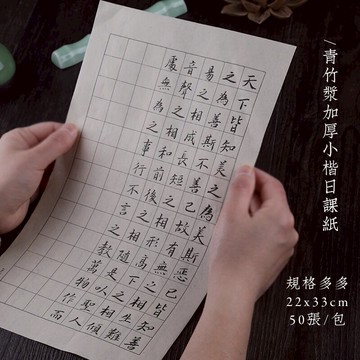 天下皆知美之為美斯惡已皆知善
之為善斯不善已故有無之相生難
易之相成長短之相形高下之相傾
音聲之相和前後之相隨是以聖人
處無為之事行不言之教萬物作而
/青竹漿加厚小楷日課紙
規格多多
22x33cm
50張/包